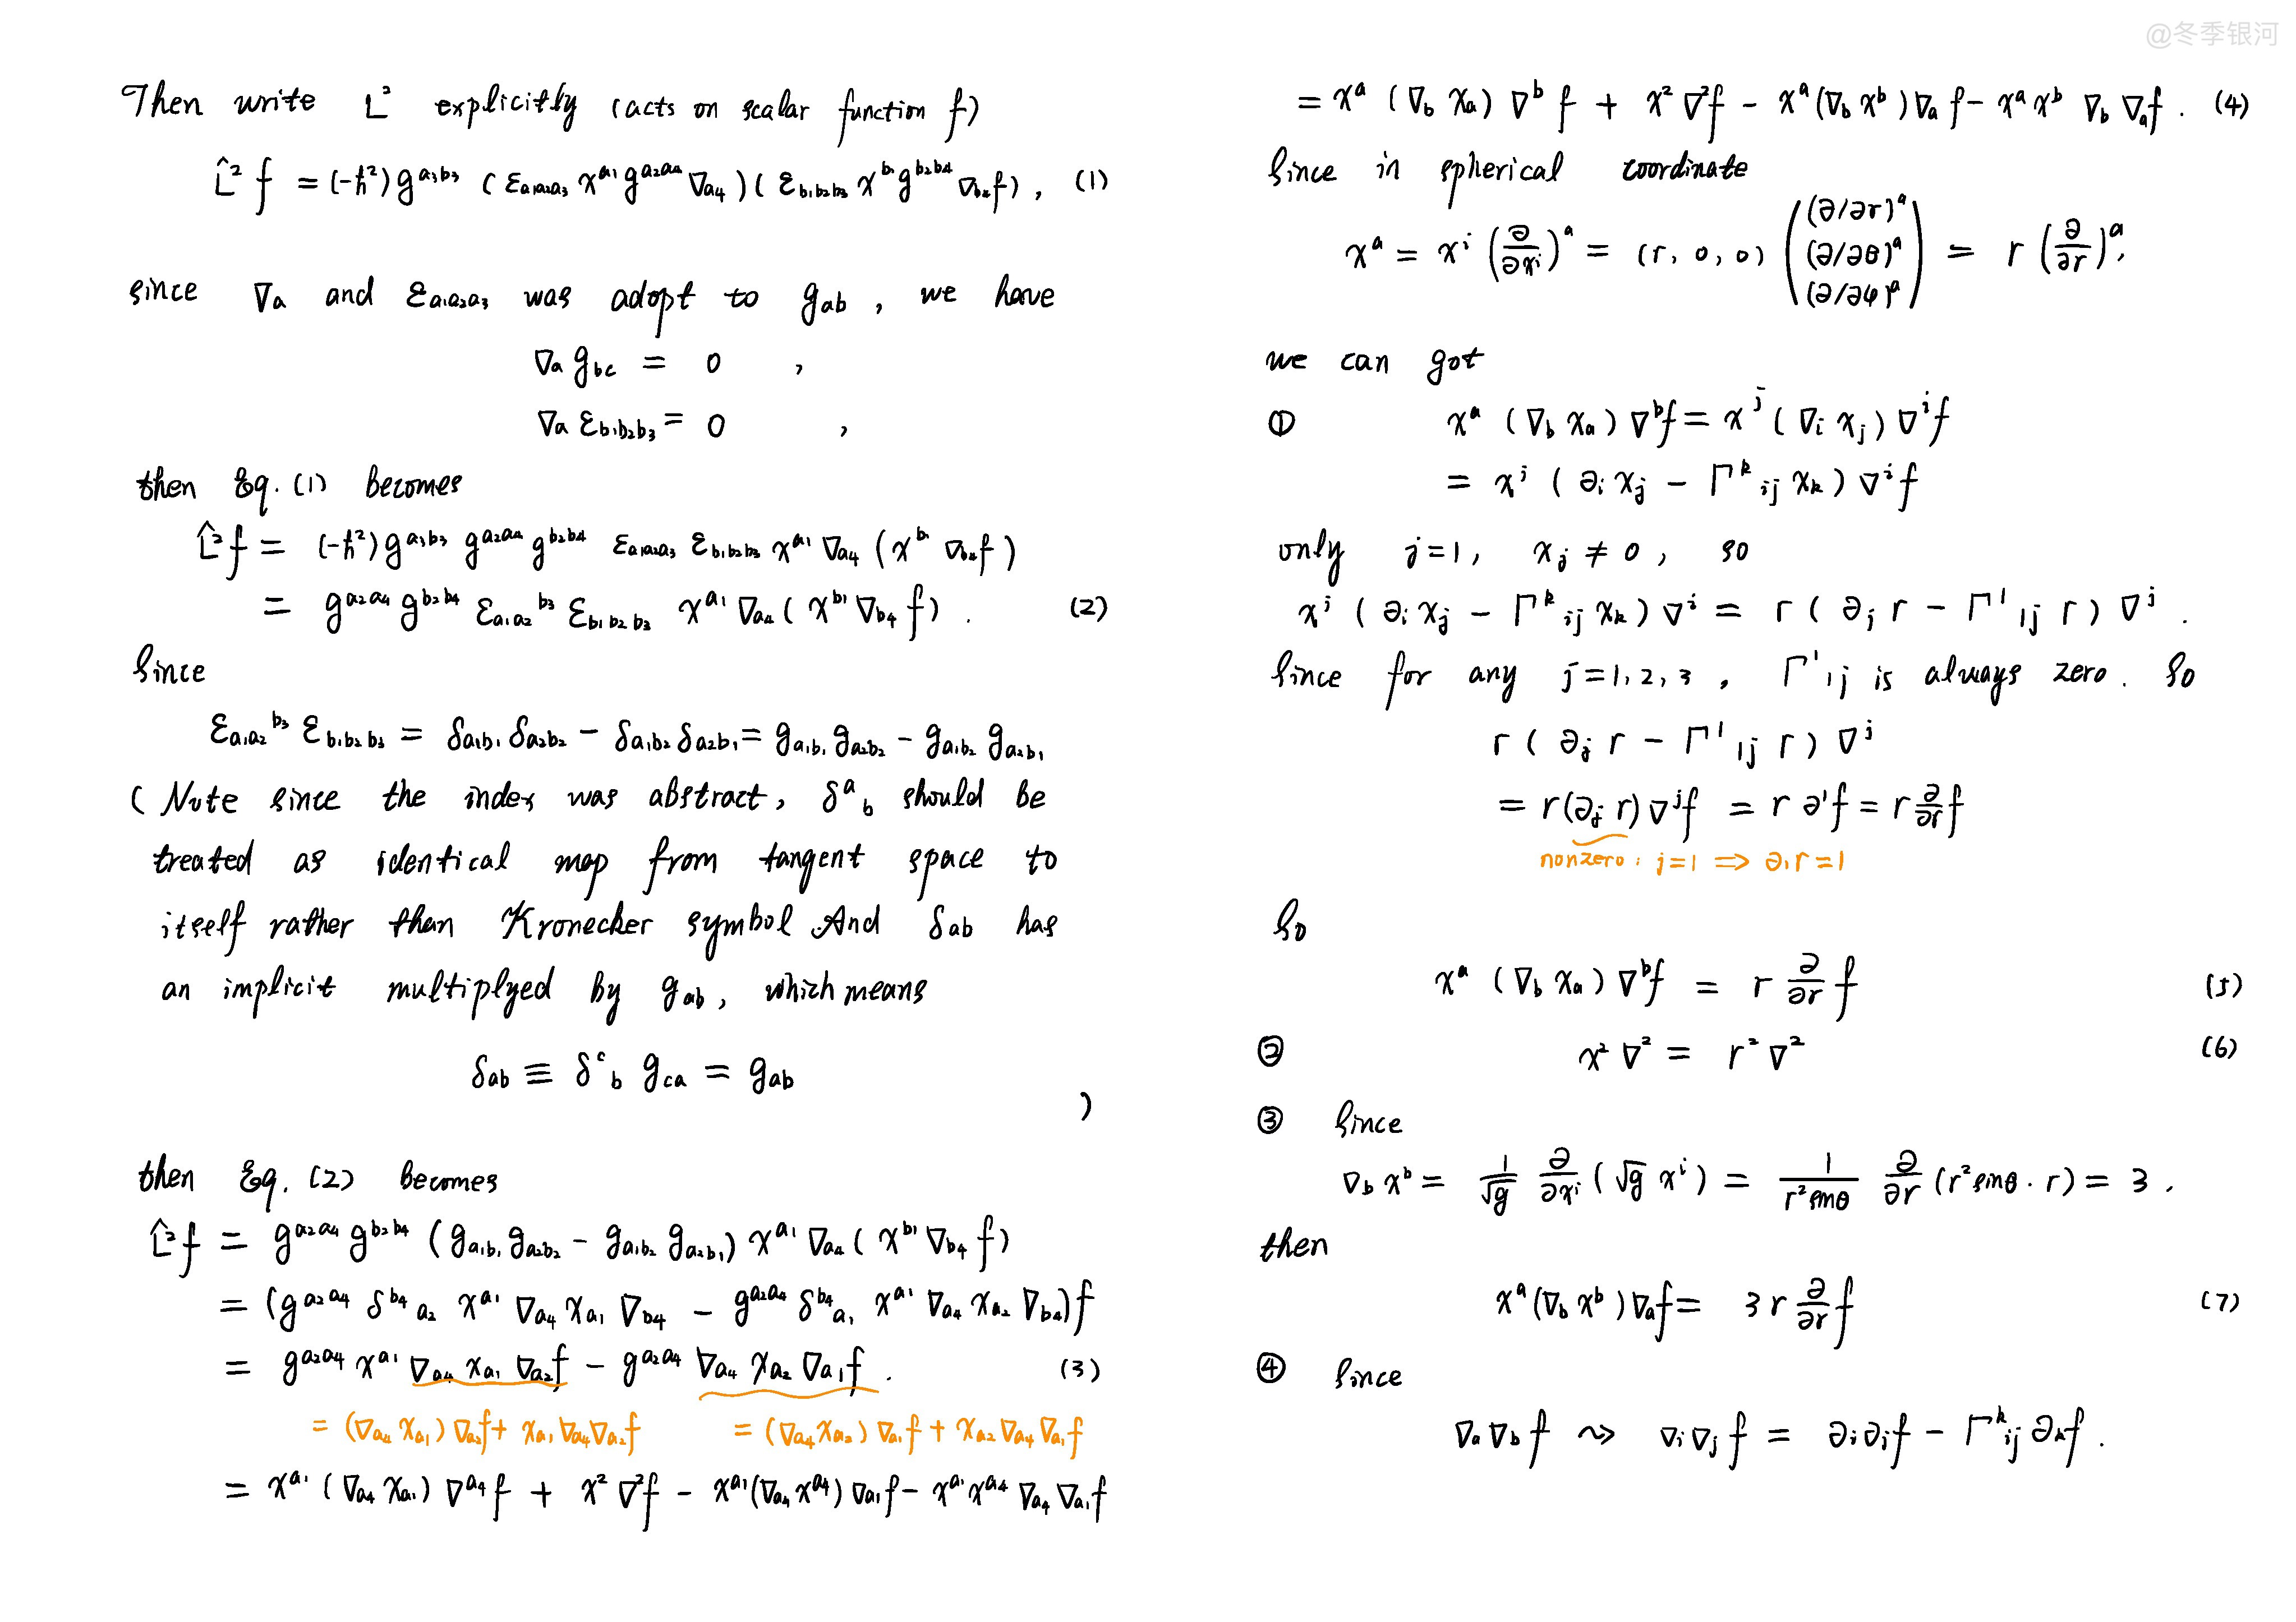 @冬季银河
Then write L² explicitly (acts on scalar function f)
L̂² f = (-ħ²) g^{a₃b₃} (ε_{a₁a₂a₃} x^{a₁} g^{a₂a₄} ∇_{a₄}) (ε_{b₁b₂b₃} x^{b₁} g^{b₂b₄} ∇_{b₄} f) , (1)
since ∇a and ε_{a₁a₂a₃} was adopt to g_{ab} , we have
∇_a g_{bc} = 0 ,
∇_a ε_{b₁b₂b₃} = 0 ,
then Eq. (1) becomes
L̂² f = (-ħ²) g^{a₃b₃} g^{a₂a₄} g^{b₂b₄} ε_{a₁a₂a₃} ε_{b₁b₂b₃} x^{a₁} ∇_{a₄} ( x^{b₁} ∇_{b₄} f )
= g^{a₂a₄} g^{b₂b₄} ε_{a₁a₂}^{b₃} ε_{b₁b₂b₃} x^{a₁} ∇_{a₄} ( x^{b₁} ∇_{b₄} f ) . (2)
Since
ε_{a₁a₂}^{b₃} ε_{b₁b₂b₃} = δ_{a₁b₁} δ_{a₂b₂} - δ_{a₁b₂} δ_{a₂b₁} = g_{a₁b₁} g_{a₂b₂} - g_{a₁b₂} g_{a₂b₁}
( Note since the index was abstract, δ^a_b should be
treated as identical map from tangent space to
itself rather than Kronecker symbol And δ_{ab} has
an implicit multiplyed by g_{ab} , which means
δ_{ab} ≡ δ^c_b g_{ca} = g_{ab}
)
then Eq. (2) becomes
L̂² f = g^{a₂a₄} g^{b₂b₄} ( g_{a₁b₁} g_{a₂b₂} - g_{a₁b₂} g_{a₂b₁} ) x^{a₁} ∇_{a₄} ( x^{b₁} ∇_{b₄} f )
= ( g^{a₂a₄} δ^{b₄}_{a₂} x^{a₁} ∇_{a₄} x_{a₁} ∇_{b₄} - g^{a₂a₄} δ^{b₄}_{a₁} x^{a₁} ∇_{a₄} x_{a₂} ∇_{b₄} ) f
= g^{a₂a₄} x^{a₁} ∇_{a₄} x_{a₁} ∇_{a₂} f - g^{a₂a₄} ∇_{a₄} x_{a₂} ∇_{a₁} f . (3)
= (∇_{a₄} x_{a₁}) ∇_{a₂} f + x_{a₁} ∇_{a₄} ∇_{a₂} f = (∇_{a₄} x_{a₂}) ∇_{a₁} f + x_{a₂} ∇_{a₄} ∇_{a₁} f
= x^{a₁} (∇_{a₄} x_{a₁}) ∇^{a₄} f + x² ∇² f - x^{a₁} (∇_{a₄} x^{a₄}) ∇_{a₁} f - x^{a₁} x^{a₄} ∇_{a₄} ∇_{a₁} f
= x^a (∇_b x_a) ∇^b f + x² ∇² f - x^a (∇_b x^b) ∇_a f - x^a x^b ∇_b ∇_a f . (4)
Since in spherical coordinate
x^a = x^i (∂/∂x^i)^a = (r, 0, 0) ( (∂/∂r)^a (∂/∂θ)^a (∂/∂φ)^a ) = r (∂/∂r)^a ,
we can got
① x^a (∇_b x_a) ∇^b f = x^j (∇_i x_j) ∇^i f
= x^j ( ∂_i x_j - Γ^k_{ij} x_k ) ∇^i f
only j=1, x_j ≠ 0 , so
x^j ( ∂_i x_j - Γ^k_{ij} x_k ) ∇^i = r ( ∂_j r - Γ^1_{1j} r ) ∇^j .
Since for any j=1,2,3 , Γ^1_{1j} is always zero. So
r ( ∂_j r - Γ^1_{1j} r ) ∇^j
= r (∂_j r) ∇^j f = r ∂^1 f = r ∂/∂r f
nonzero: j=1 ⇒ ∂₁r = 1
So
x^a (∇_b x_a) ∇^b f = r ∂/∂r f (5)
② x² ∇² = r² ∇² (6)
③ Since
∇_b x^b = 1/√g ∂/∂x^i (√g x^i) = 1/(r² sinθ) ∂/∂r (r² sinθ · r) = 3 .
then
x^a (∇_b x^b) ∇_a f = 3r ∂/∂r f (7)
④ Since
∇_a ∇_b f ⇝ ∇_i ∇_j f = ∂_i ∂_j f - Γ^k_{ij} ∂_k f .